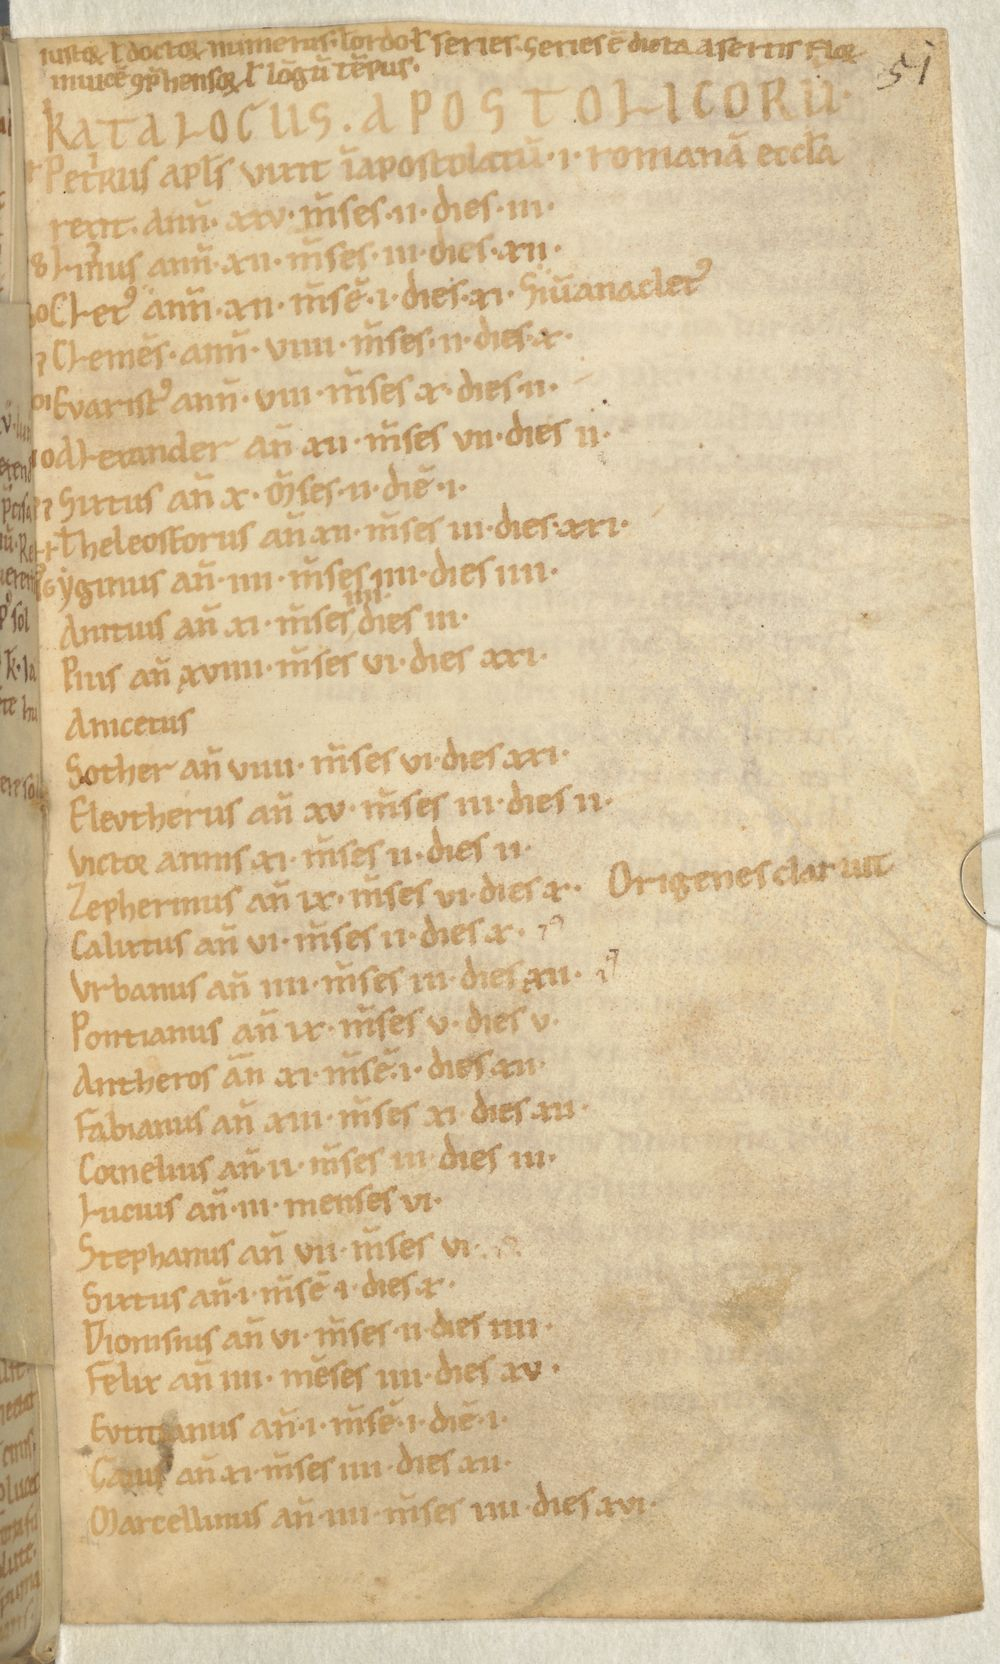 iustoꝝ ł doctoꝝ numerus. ł ordo ł series. Series ē dicta a sertis floꝝ
inuicē ꝯp̄hensoꝝ ł lōgū tēpus.
51
KATALOGUS. APOSTOLICORŪ.
Petrus apl̄s vixit ī apostolatū. i. romanā eccl̄a
rexit. ann̄. xxv. m̄ses. ii. dies. iii.
Linus ann̄. xii. m̄ses. iii. dies. xii.
Cletꝰ ann̄. xii. m̄sē. i. dies. xi. Siū anacletꝰ
Clemēs. ann̄. viiii. m̄ses. ii. dies. x.
Evaristꝰ ann̄. viii. m̄ses x. dies. ii.
Alexander an̄ xii. m̄ses vii. dies ii.
Sixtus an̄ x. m̄ses. ii. diē. i.
Theleosforus an̄ xii. m̄ses iii. dies. xxi.
yginus an̄. iiii. m̄ses iiii. dies iiii.
Anitius an̄ xi. m̄ses iiii. dies iii.
Pius an̄ xviiii. m̄ses vi. dies xxi.
Anicetus
Sother an̄ viiii. m̄ses vi. dies xxi.
Eleutherus an̄ xv. m̄ses iii. dies ii.
Victor annis xi. m̄ses ii. dies ii.
Zepherinus an̄ ix. m̄ses vi. dies x. Origenes claruit
Calixtus an̄ vi. m̄ses ii. dies x.
Urbanus an̄ iiii. m̄ses iii. dies xii.
Pontianus an̄ ix. m̄ses v. dies v.
Antheros an̄ xi. m̄sē. i. dies. xii.
Fabianus an̄ xiii. m̄ses xi. dies xii.
Cornelius an̄. ii. m̄ses iii. dies iii.
Lucius an̄. iii. menses vi.
Stephanus an̄ vii. m̄ses vi.
Sixtus an̄. i. m̄sē. i. dies. x.
Dionisius an̄ vi. m̄ses. ii. dies iiii.
Felix an̄ iiii. mēses iiii. dies xv.
Euticianus an̄. i. m̄sē. i. diē. i.
Caius an̄ xi. m̄ses iiii. dies xii.
Marcellinus an̄. iiii. m̄ses iiii. dies xvi.